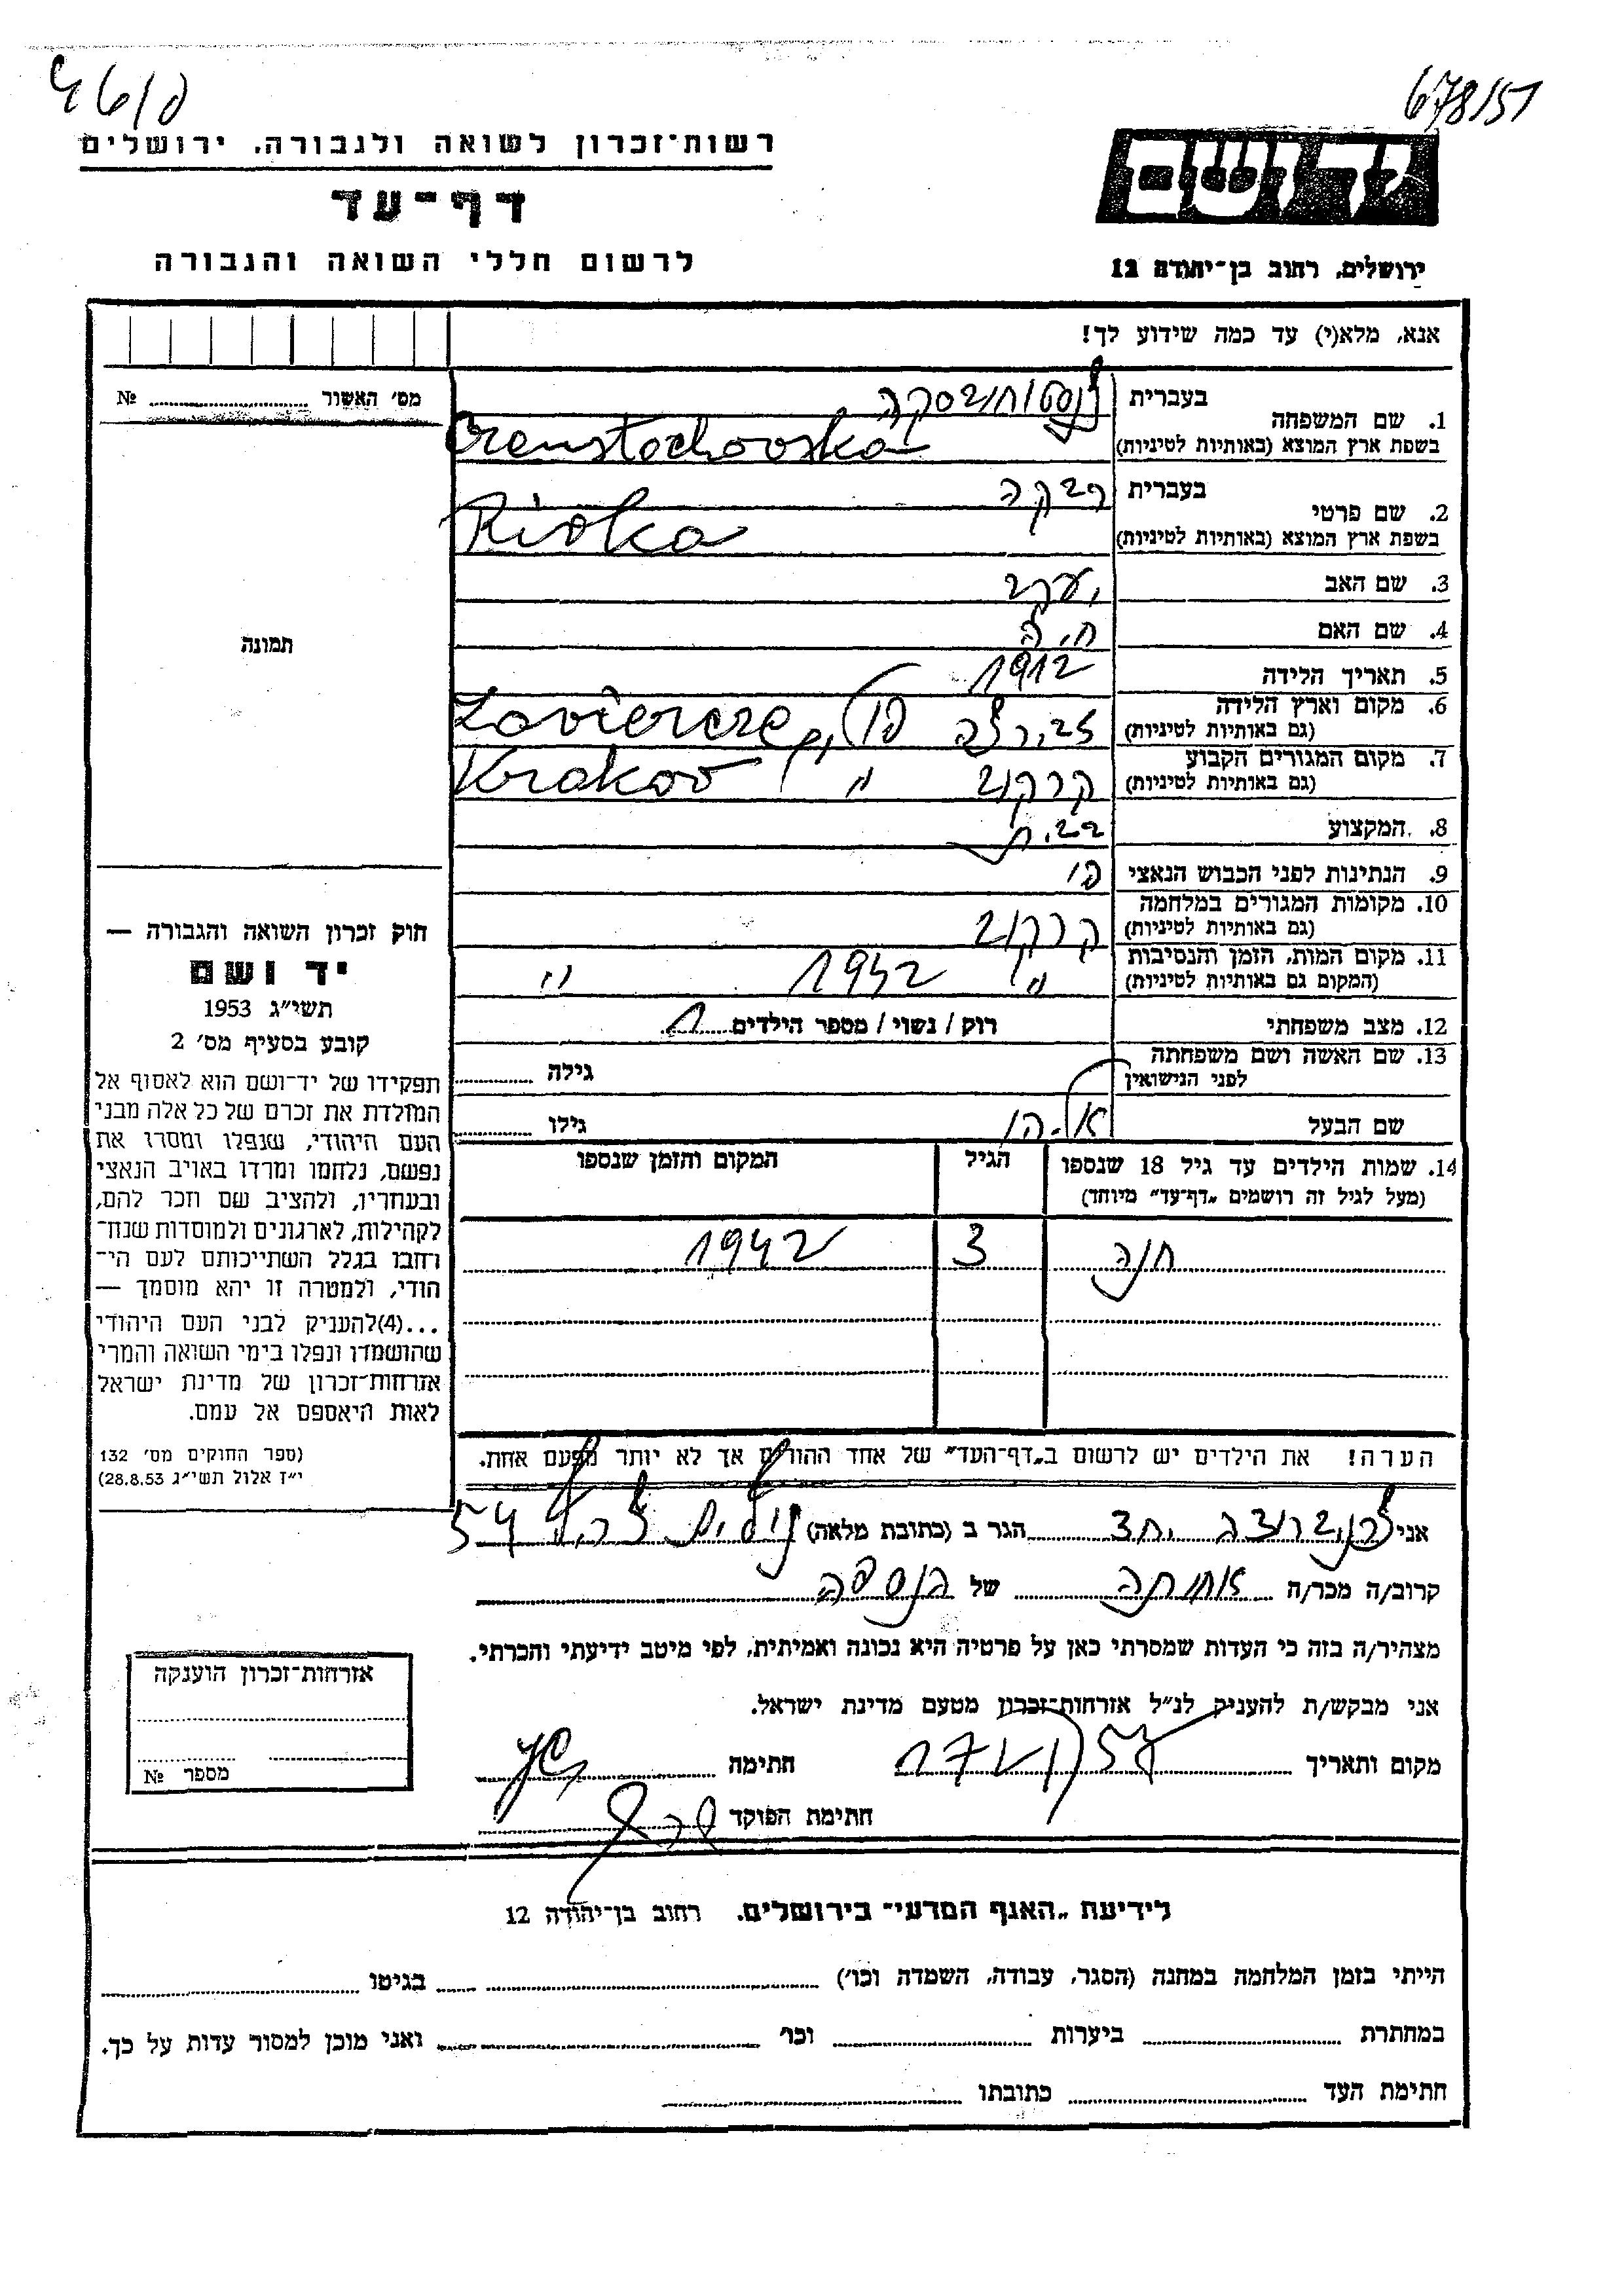 678/51
רשות-זכרון לשואה ולגבורה, ירושלים
דף-עד
לרשום חללי השואה והגבורה
יד ושם
ירושלים, רחוב בן-יהודה 12
אנא, מלא(י) עד כמה שידוע לך!
מס' האשור № 
1. שם המשפחה
בעברית
בשפת ארץ המוצא (באותיות לטיניות) Czenstochovska
2. שם פרטי
בעברית רבקה
בשפת ארץ המוצא (באותיות לטיניות) Rivka
3. שם האב יעקב
4. שם האם חיה
5. תאריך הלידה 1912
6. מקום וארץ הלידה
(גם באותיות לטיניות) פו' Zaviercze,
7. מקום המגורים הקבוע
(גם באותיות לטיניות) קרקוב " Krakov
8. המקצוע
9. הנתינות לפני הכבוש הנאצי פו'
10. מקומות המגורים במלחמה
(גם באותיות לטיניות) קרקוב
11. מקום המות, הזמן והנסיבות
(המקום גם באותיות לטיניות) " 1942 "
12. מצב משפחתי רווק / נשוי / מספר הילדים 1
13. שם האשה ושם משפחתה
לפני הנישואין
גילה
שם הבעל גילו
14. שמות הילדים עד גיל 18 שנספו
(מעל לגיל זה רושמים "דף-עד" מיוחד)
הגיל
המקום והזמן שנספו
חנה 3 1942
הערה! את הילדים יש לרשום ב"דף-העד" של אחד ההורים אך לא יותר מפעם אחת.
תמונה
חוק זכרון השואה והגבורה —
יד ושם
תשי"ג 1953
קובע בסעיף מס' 2
תפקידו של יד-ושם הוא לאסוף אל
המולדת את זכרם של כל אלה מבני
העם היהודי, שנפלו ומסרו את
נפשם, נלחמו ומרדו באויב הנאצי
ובעוזריו, ולהציב שם וזכר להם,
לקהילות, לארגונים ולמוסדות שנח-
רחבו בגלל השתייכותם לעם הי-
הודי, ולמטרה זו יהא מוסמך —
...(4)להעניק לבני העם היהודי
שהושמדו ונפלו בימי השואה והמרי
אזרחות-זכרון של מדינת ישראל
לאות היאספם אל עמם.
(ספר החוקים מס' 132
י"ז אלול תשי"ג 28.8.53)
אני הגר ב (כתובת מלאה) 54
קרוב/ה מכר/ה אחותה של הנספה
מצהיר/ה בזה כי העדות שמסרתי כאן על פרטיה היא נכונה ואמיתית, לפי מיטב ידיעתי והכרתי.
אני מבקש/ת להעניק לנ"ל אזרחות-זכרון מטעם מדינת ישראל.
מקום ותאריך חתימה
חתימת הפוקד
אזרחות-זכרון הוענקה
מספר №
לידיעת "האגף המדעי" בירושלים, רחוב בן-יהודה 12
הייתי בזמן המלחמה במחנה (הסגר, עבודה, השמדה וכו') בגיטו
במחתרת ביערות וכו' ואני מוכן למסור עדות על כך.
חתימת העד כתובתו